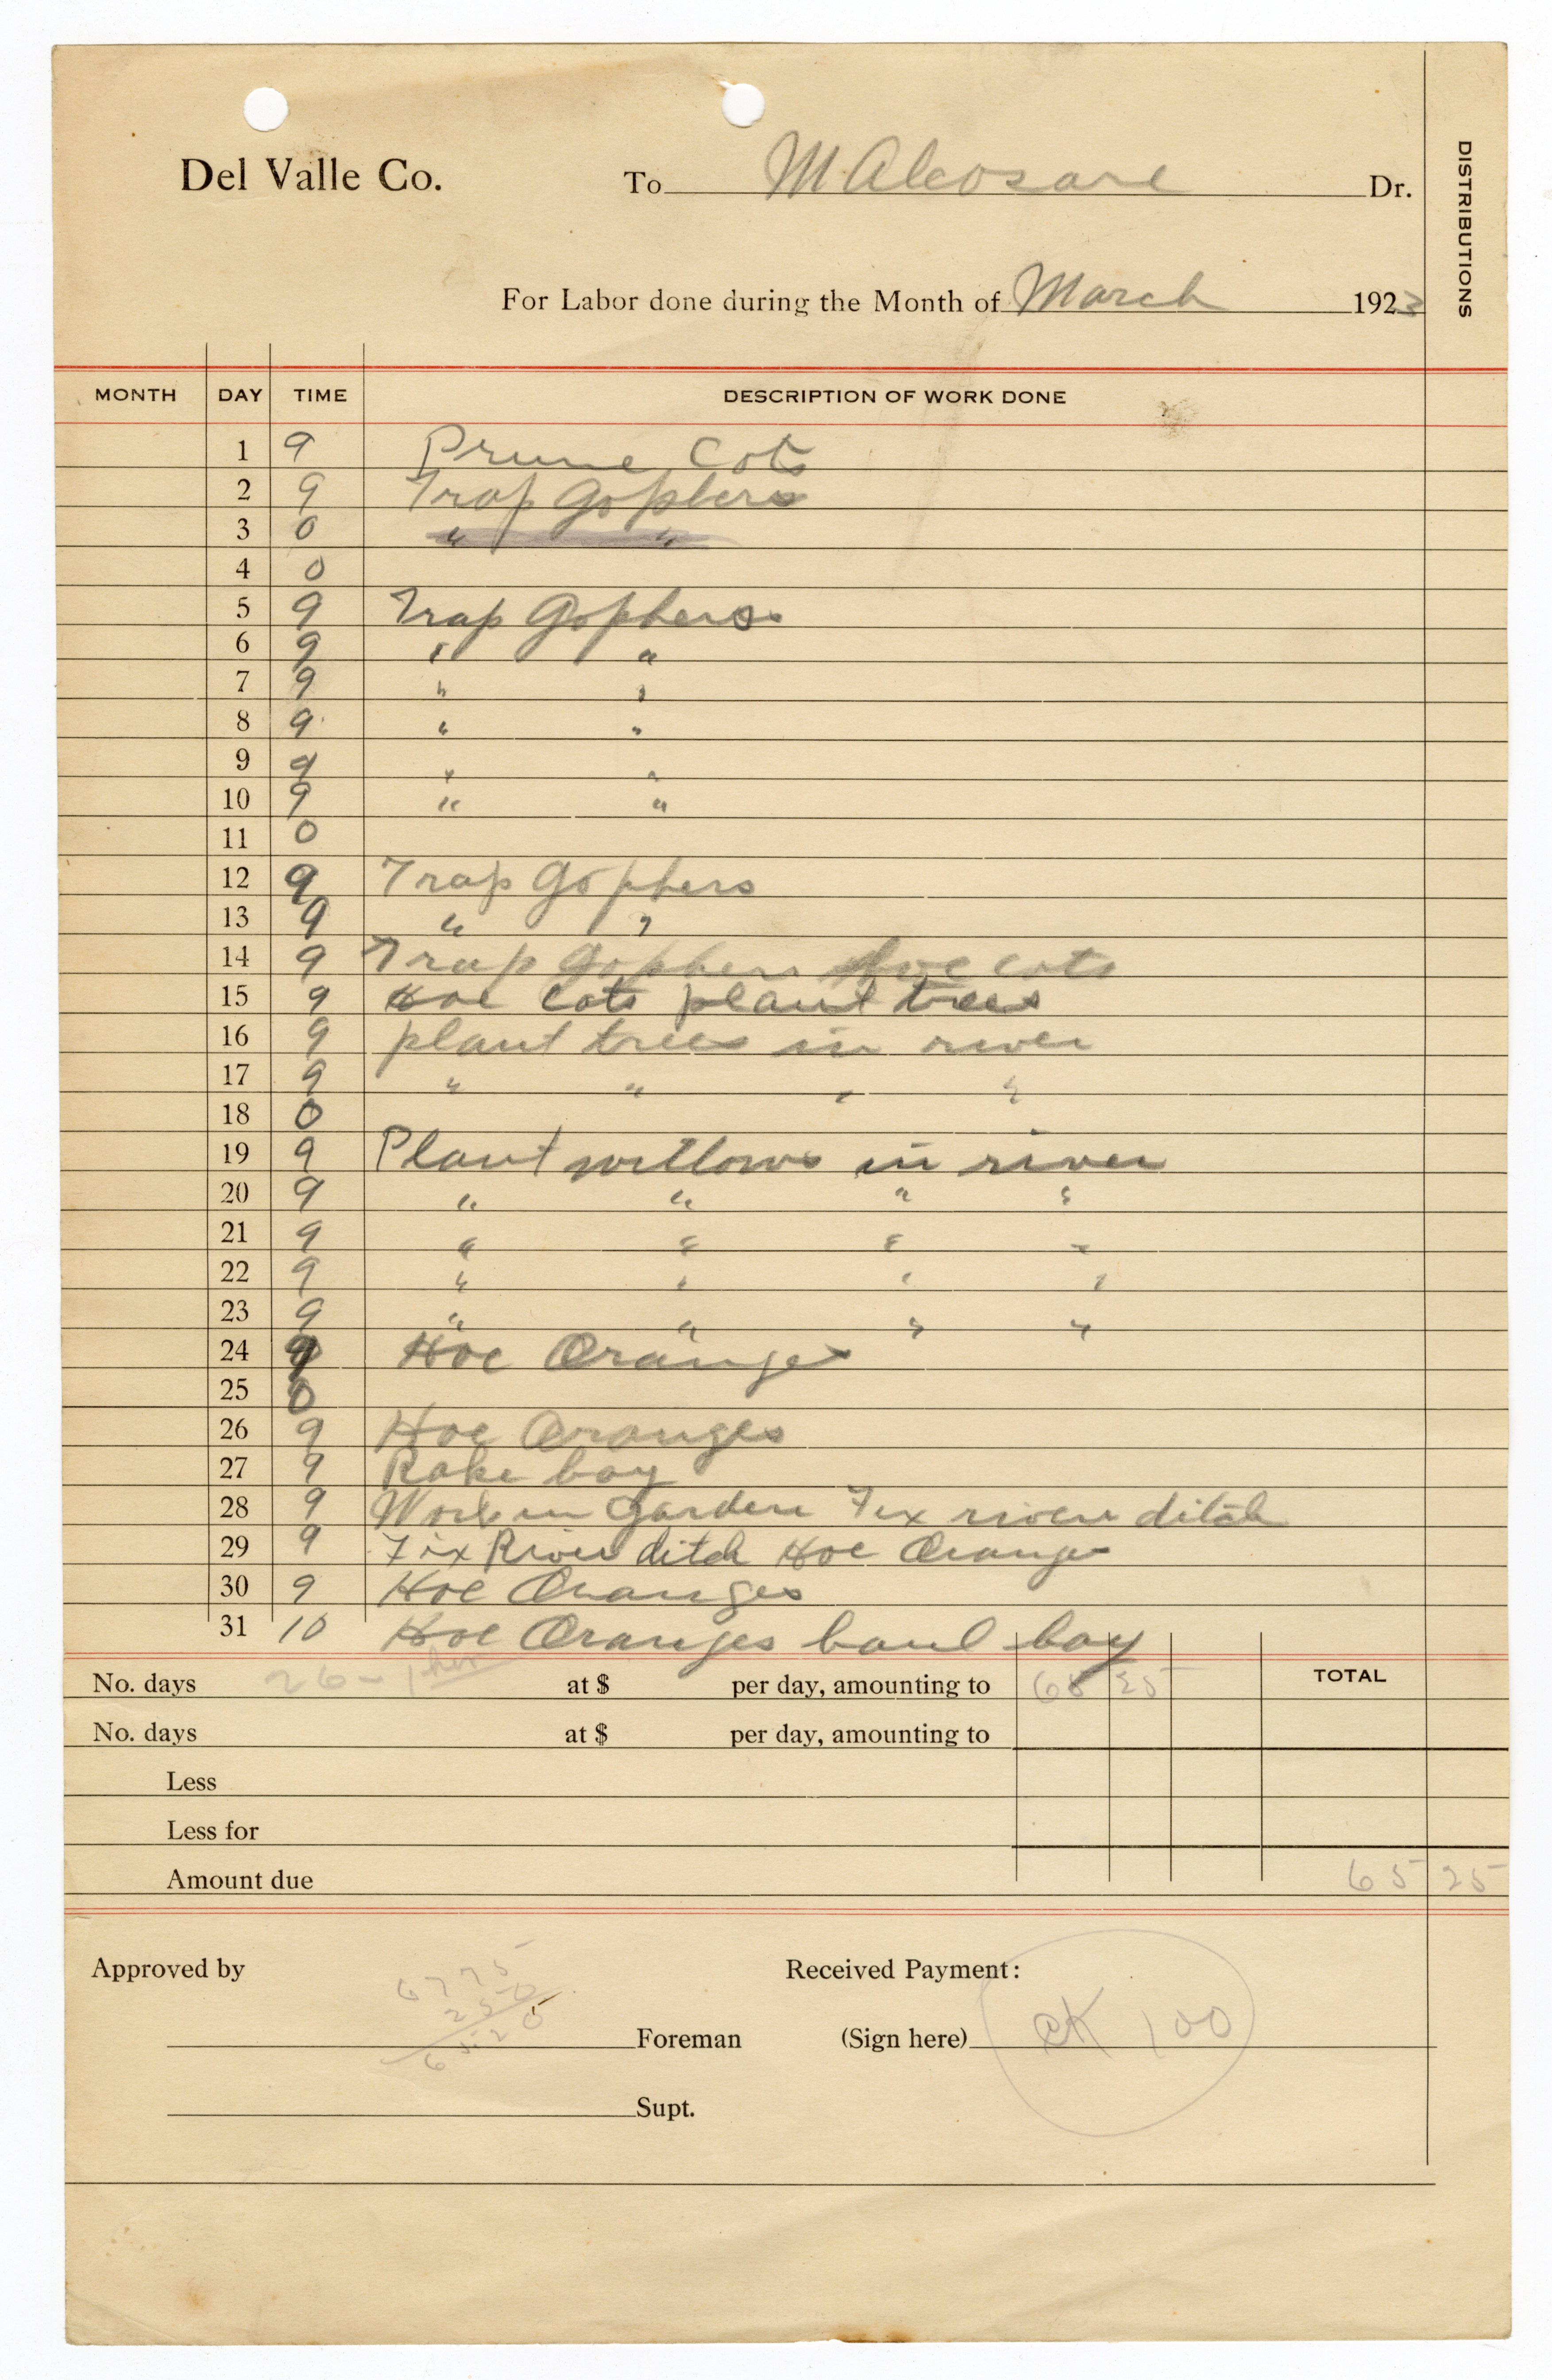 Del Valle Co.
To M Alcosare Dr.
DISTRIBUTIONS
For Labor done during the Month of March 1923
MONTH DAY TIME DESCRIPTION OF WORK DONE
1 9 Prune Cots
2 9 Trap Gophers
3 0 " "
4 0
5 9 Trap Gophers
6 9 " "
7 9 " "
8 9 " "
9 9 " "
10 9 " "
11 0
12 9 Trap Gophers
13 9 " "
14 9 Trap Gophers Hoe cots
15 9 Hoe Cots plant trees
16 9 plant trees in river
17 9 " " " "
18 0
19 9 Plant willows in river
20 9 " " " "
21 9 " " " "
22 9 " " " "
23 9 " " " "
24 9 Hoe Oranges
25 0
26 9 Hoe Oranges
27 9 Rake hay
28 9 Work in Garden Fix river ditch
29 9 Fix River ditch Hoe Oranges
30 9 Hoe Oranges
31 10 Hoe Oranges haul hay
No. days 26 - 1 hr at $ per day, amounting to 65 25 TOTAL
No. days at $ per day, amounting to
Less
Less for
Amount due 65 25
Approved by Received Payment:
6775
250
6525
Foreman (Sign here) CK 100
Supt.